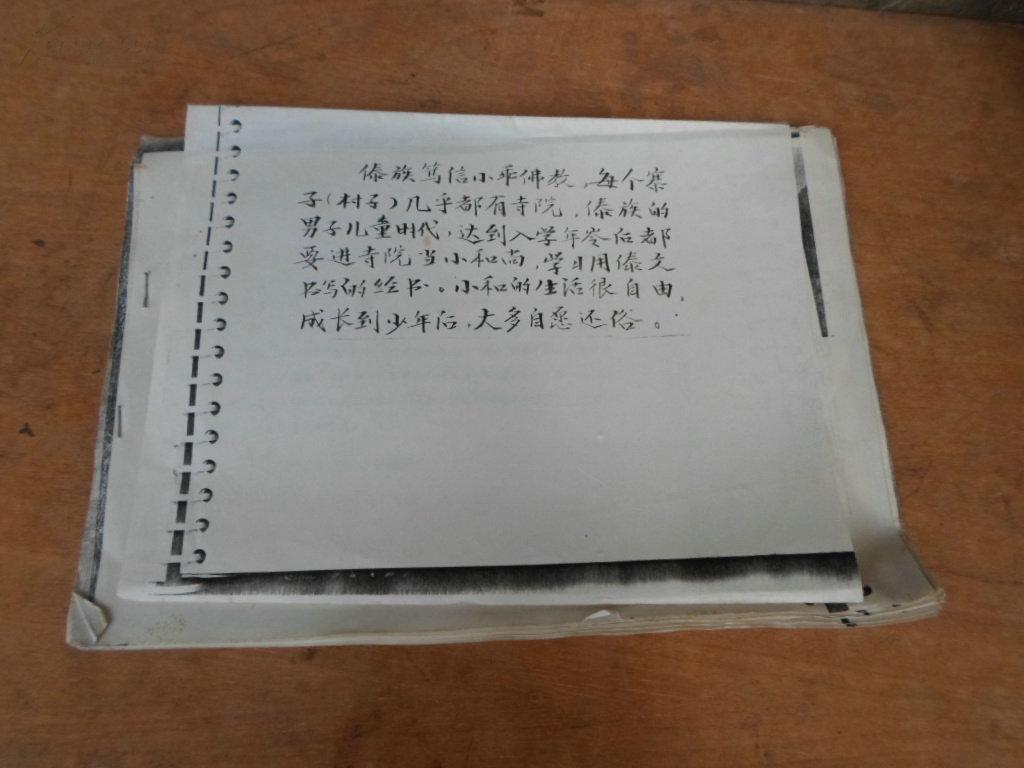 傣族笃信小乘佛教,每个寨
子(村子)几乎都有寺院,傣族的
男子儿童时代,达到入学年岺后都
要进寺院当小和尚,学习用傣文
书写的经书。小和的生活很自由,
成长到少年后,大多自愿还俗。